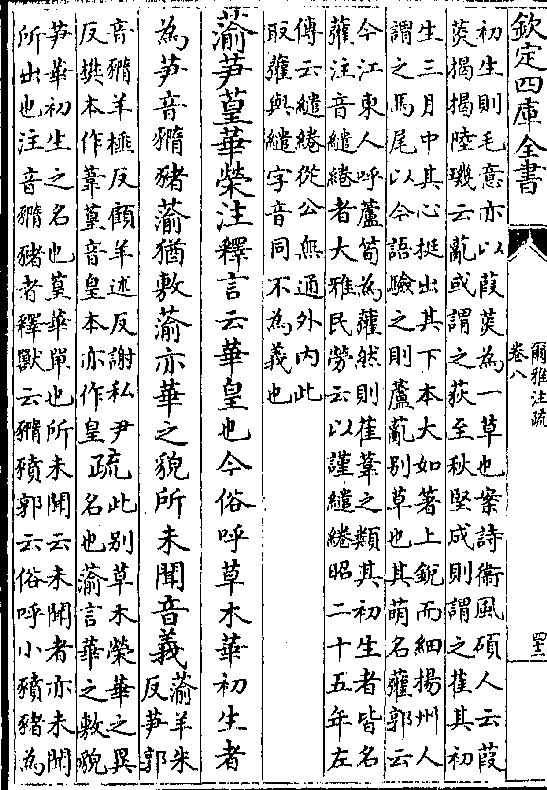 欽定四庫全書
爾雅注疏
卷八
初生則毛意亦以葭菼為一草也案詩衛風碩人云葭
菼揭揭陸璣云薍或謂之荻至秋堅成則謂之萑其初
生三月中其心挺出其下本大如箸上銳而細揚州人
謂之馬尾以今語驗之則蘆薍别草也其萌名虇郭云
今江東人呼蘆筍為虇然則萑葦之類其初生者皆名
虇注音繾綣者大雅民勞云以謹繾綣昭二十五年左
傳云繾綣從公無通外内此
取虇與繾字音同不為義也
蕍芛葟華榮注釋言云華皇也今俗呼草木華初生者
為芛音䝐豬蕍猶敷蕍亦華之貌所未聞音義蕍羊朱
反芛郭
音䝐羊棰反顧羊述反謝私尹
反樊本作葦葟音皇本亦作皇疏此别草木榮華之異
名也蕍言華之敷貌
芛華初生之名也葟華單也所未聞云未聞者亦未聞
所出也注音䝐豬者釋獸云䝐豶郭云俗呼小豶豬為